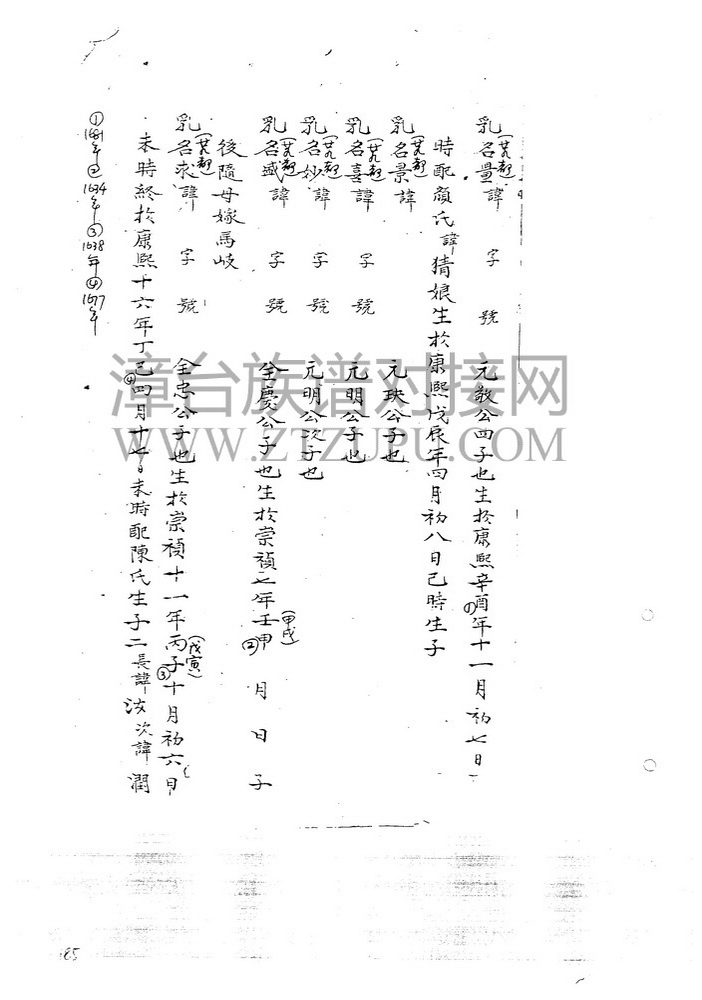 乳名量(廿九都)諱 字 號 元教公四子也生於康熙辛酉①年十一月初七日
時配顏氏諱猜娘生於康熙戊辰年四月初八日巳時生子
乳名景(廿九都)諱 元珙公子也
乳名喜(廿九都)諱 字 號 元明公子也
乳名妙(廿九都)諱 字 號 元明公次子也
乳名盛(廿九都)諱 字 號 全慶公子也生於崇禎七年壬申(甲戌)② 月 日 子
後隨母嫁馬岐
乳名求(廿九都)諱 字 號 全忠公子也生於崇禎十一年丙子(戊寅)③十月初六日
未時終於康熙十六年丁巳④四月十七日未時配陳氏生子二長諱 次諱潤
①1681年②1634年③1638年④1677年
漳台族谱对接网
WWW.ZTZUPU.COM
85